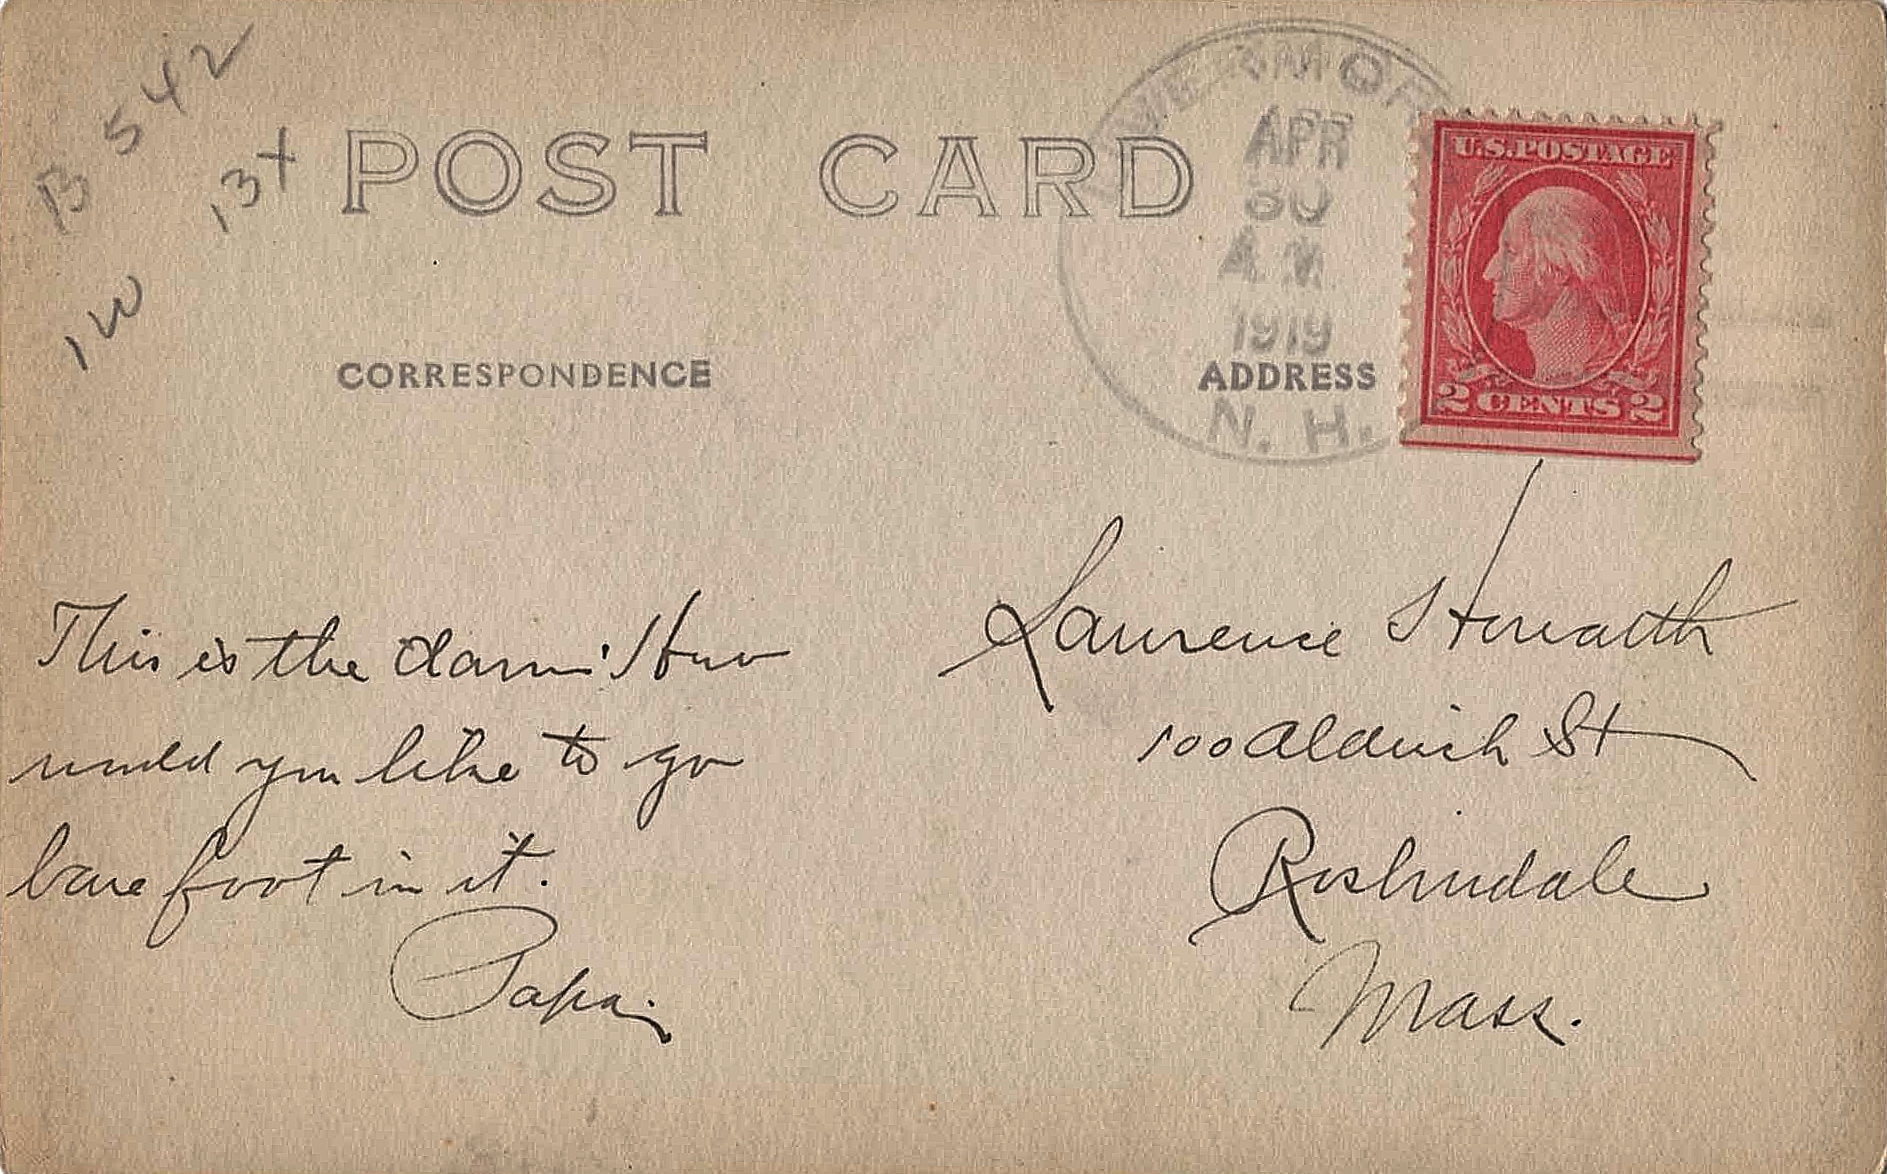 B 542
13+
POST CARD
APR
30
A.M.
1919
N. H.
U.S. POSTAGE
2 CENTS 2
CORRESPONDENCE
ADDRESS
This is the dam. How
would you like to go
bare foot in it.
Papa.
Laurence Horwath
100 Aldwich St
Roslindale
Mass.